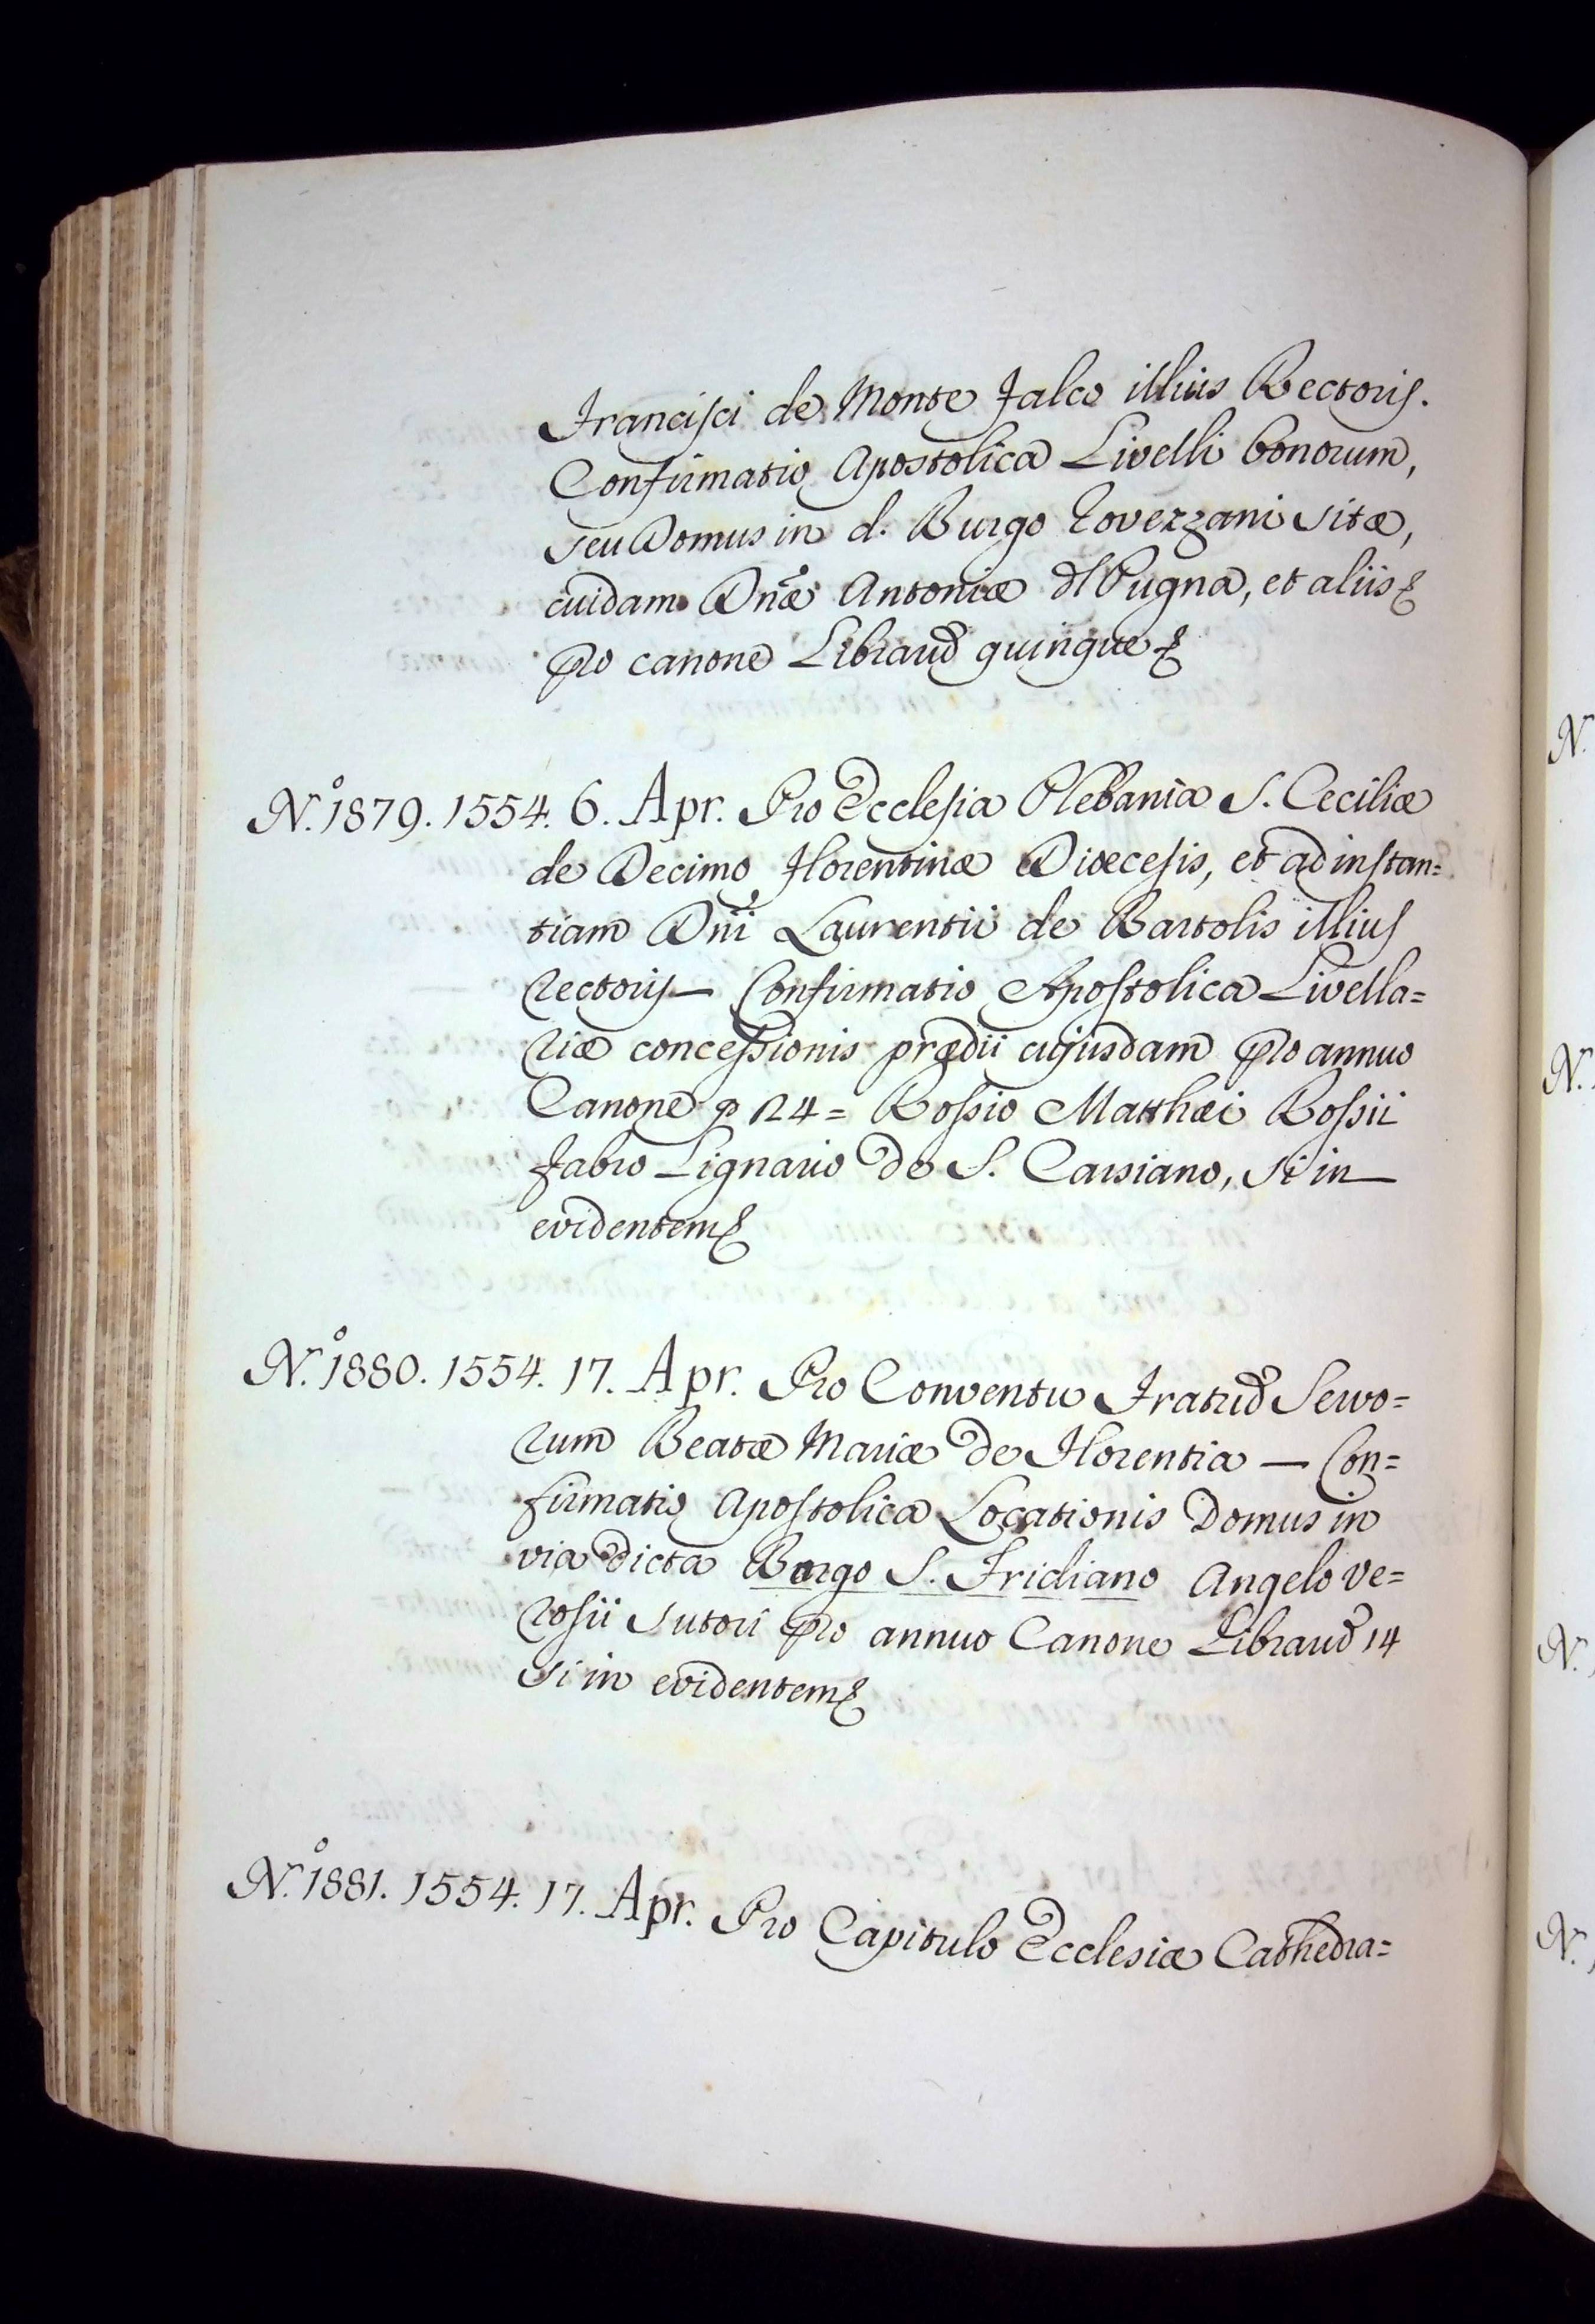 Francisci de Monte Falco illius Rectoris.
Confirmatio Apostolica Livelli bonorum,
seu Domus in d. Burgo Rovezzani sitæ,
cuidam Dnæ Antoniæ del Pugna, et aliis &
pro canone Librarum quinque &
N.º 1879. 1554. 6. Apr. Pro Ecclesia Plebania S. Ceciliæ
de Decimo Florentinæ Diœcesis, et ad instan=
tiam Dni Laurentii de Bartolis illius
rectoris — Confirmatio Apostolica Livella=
riæ concessionis prædii cujusdam pro annuo
Canone 24= Rossio Matthæi Rossii
fabro Lignario de S. Cassiano, si in —
evidentem &
N.º 1880. 1554. 17. Apr. Pro Conventu Fratrum Servo=
rum Beatæ Mariæ de Florentia — Con=
firmatio Apostolica Locationis Domus in
via dicta Borgo S. Fridiano Angelo Ve=
rosii sutori pro annuo Canone Librarum 14
si in evidentem &
N.º 1881. 1554. 17. Apr. Pro Capitulo Ecclesiæ Cathedra=
N.
N.
N.
N.